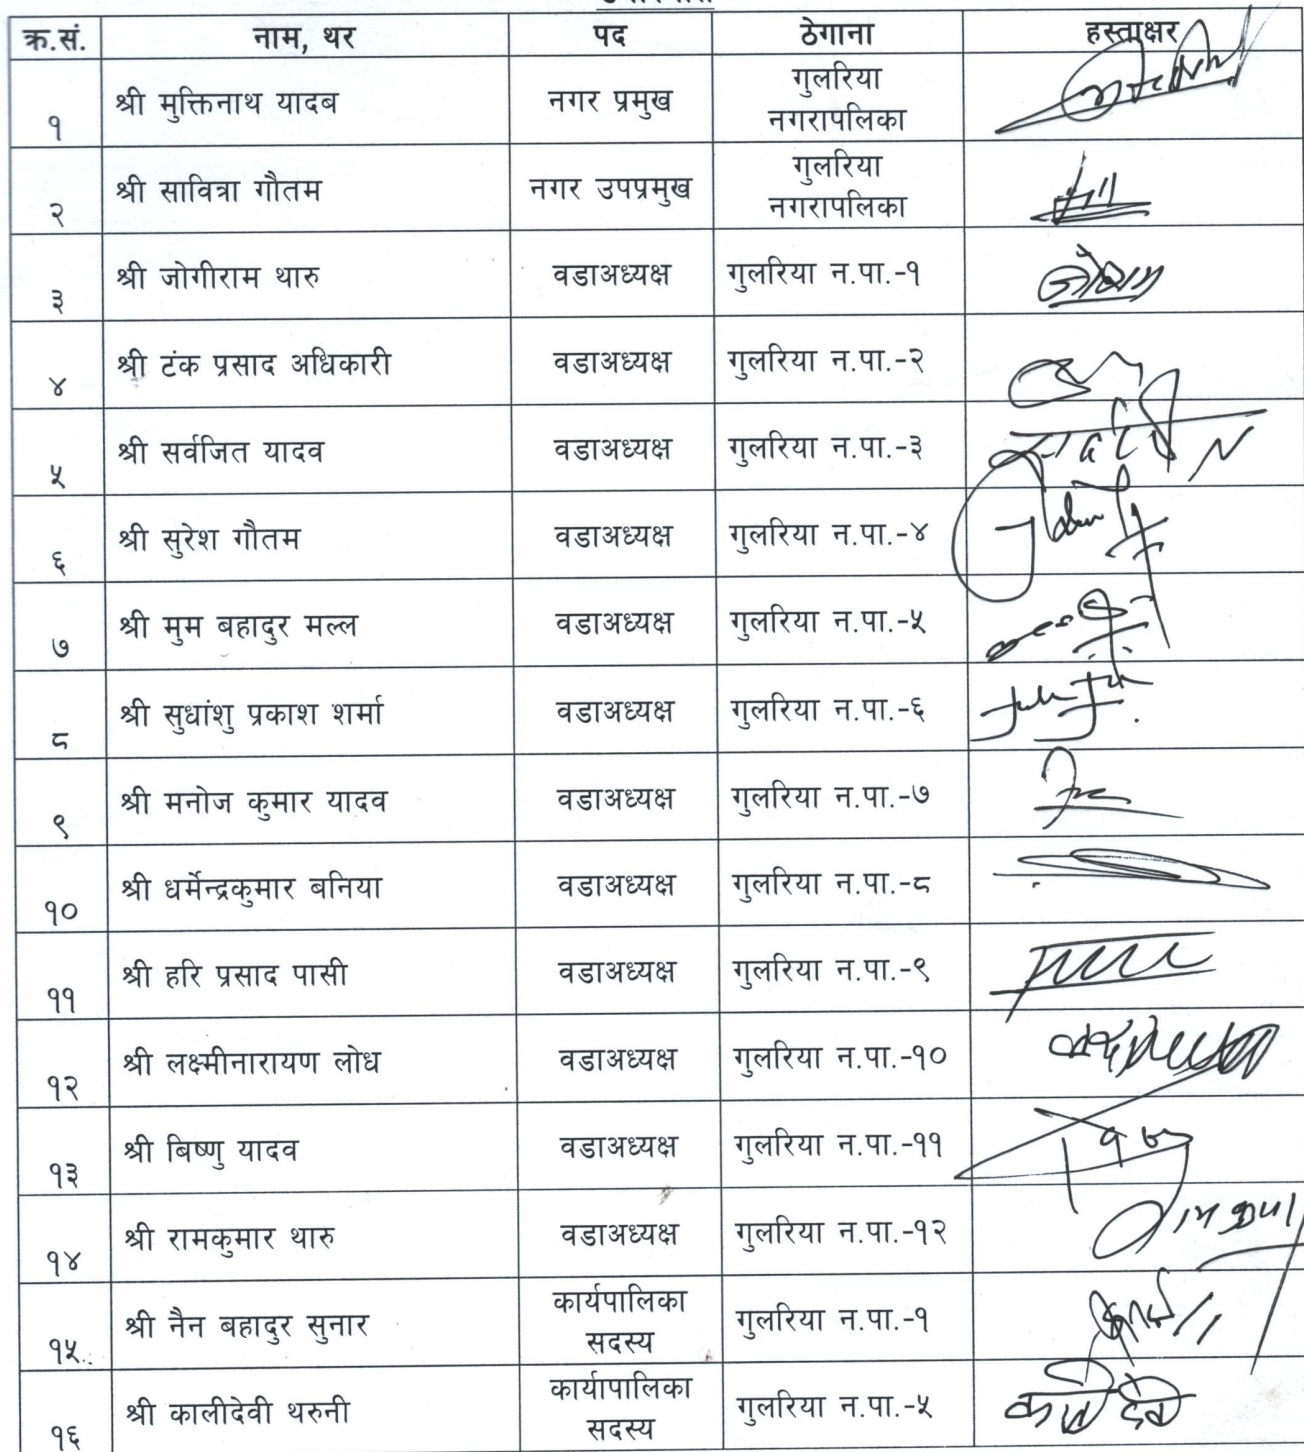 क्र.सं. नाम, थर पद ठेगाना हस्ताक्षर
१ श्री मुक्तिनाथ यादब नगर प्रमुख गुलरिया
नगरापलिका
२ श्री सावित्रा गौतम नगर उपप्रमुख गुलरिया
नगरापलिका
३ श्री जोगीराम थारु वडाअध्यक्ष गुलरिया न.पा.-१
४ श्री टंक प्रसाद अधिकारी वडाअध्यक्ष गुलरिया न.पा.-२
५ श्री सर्वजित यादव वडाअध्यक्ष गुलरिया न.पा.-३
६ श्री सुरेश गौतम वडाअध्यक्ष गुलरिया न.पा.-४
७ श्री मुम बहादुर मल्ल वडाअध्यक्ष गुलरिया न.पा.-५
८ श्री सुधांशु प्रकाश शर्मा वडाअध्यक्ष गुलरिया न.पा.-६
९ श्री मनोज कुमार यादव वडाअध्यक्ष गुलरिया न.पा.-७
१० श्री धर्मेन्द्रकुमार बनिया वडाअध्यक्ष गुलरिया न.पा.-८
११ श्री हरि प्रसाद पासी वडाअध्यक्ष गुलरिया न.पा.-९
१२ श्री लक्ष्मीनारायण लोध वडाअध्यक्ष गुलरिया न.पा.-१०
१३ श्री बिष्णु यादव वडाअध्यक्ष गुलरिया न.पा.-११
१४ श्री रामकुमार थारु वडाअध्यक्ष गुलरिया न.पा.-१२
१५ श्री नैन बहादुर सुनार कार्यपालिका
सदस्य गुलरिया न.पा.-१
१६ श्री कालीदेवी थरुनी कार्यापालिका
सदस्य गुलरिया न.पा.-५